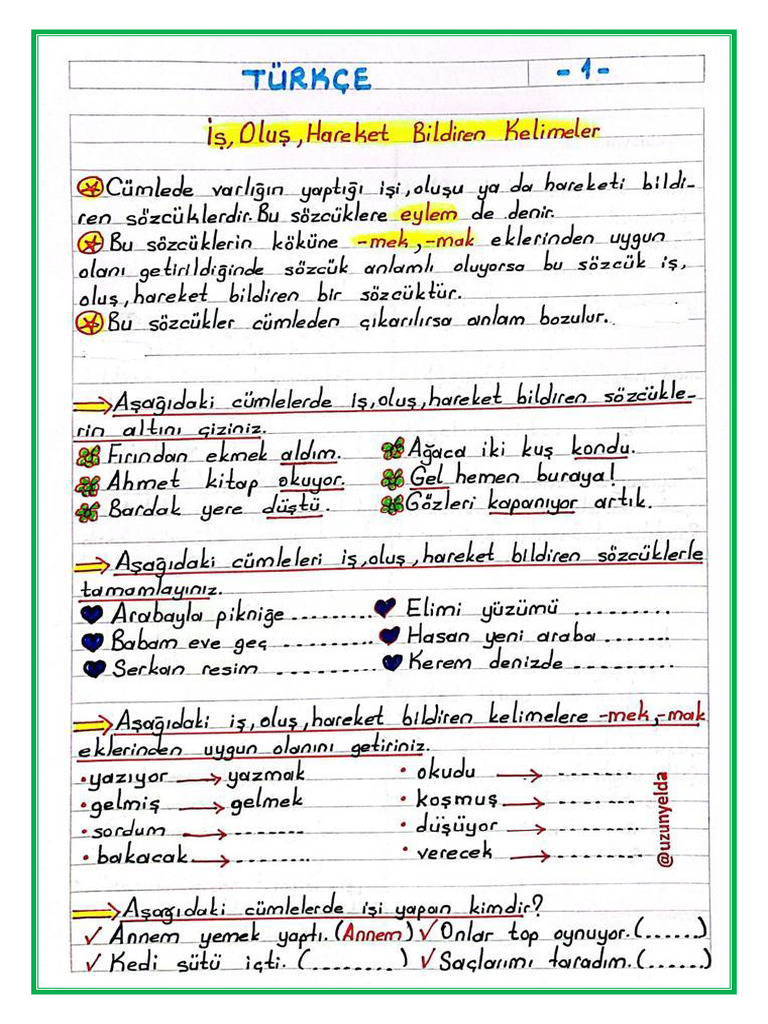 TÜRKÇE -1-
İş, Oluş, Hareket Bildiren Kelimeler
Cümlede varlığın yaptığı işi, oluşu ya da hareketi bildi-
ren sözcüklerdir. Bu sözcüklere eylem de denir.
Bu sözcüklerin köküne -mek, -mak eklerinden uygun
olanı getirildiğinde sözcük anlamlı oluyorsa bu sözcük iş,
oluş, hareket bildiren bir sözcüktür.
Bu sözcükler cümleden çıkarılırsa anlam bozulur.
Aşağıdaki cümlelerde iş, oluş, hareket bildiren sözcükle-
rin altını çiziniz.
Fırından ekmek aldım. Ağaca iki kuş kondu.
Ahmet kitap okuyor. Gel hemen buraya!
Bardak yere düştü. Gözleri kapanıyor artık.
Aşağıdaki cümleleri iş, oluş, hareket bildiren sözcüklerle
tamamlayınız.
Arabayla pikniğe .......... Elimi yüzümü ..........
Babam eve geç .......... Hasan yeni araba ........
Serkan resim .......... Kerem denizde ..........
Aşağıdaki iş, oluş, hareket bildiren kelimelere -mek, -mak
eklerinden uygun olanını getiriniz.
• yazıyor → yazmak • okudu → --------
• gelmiş → gelmek • koşmuş → --------
• sordum → -------- • düşüyor → --------
• bakacak → -------- • verecek → --------
@uzunyelda
Aşağıdaki cümlelerde işi yapan kimdir?
✓ Annem yemek yaptı. (Annem) ✓ Onlar top oynuyor. (......)
✓ Kedi sütü içti. (........) ✓ Saçlarımı taradım. (......)